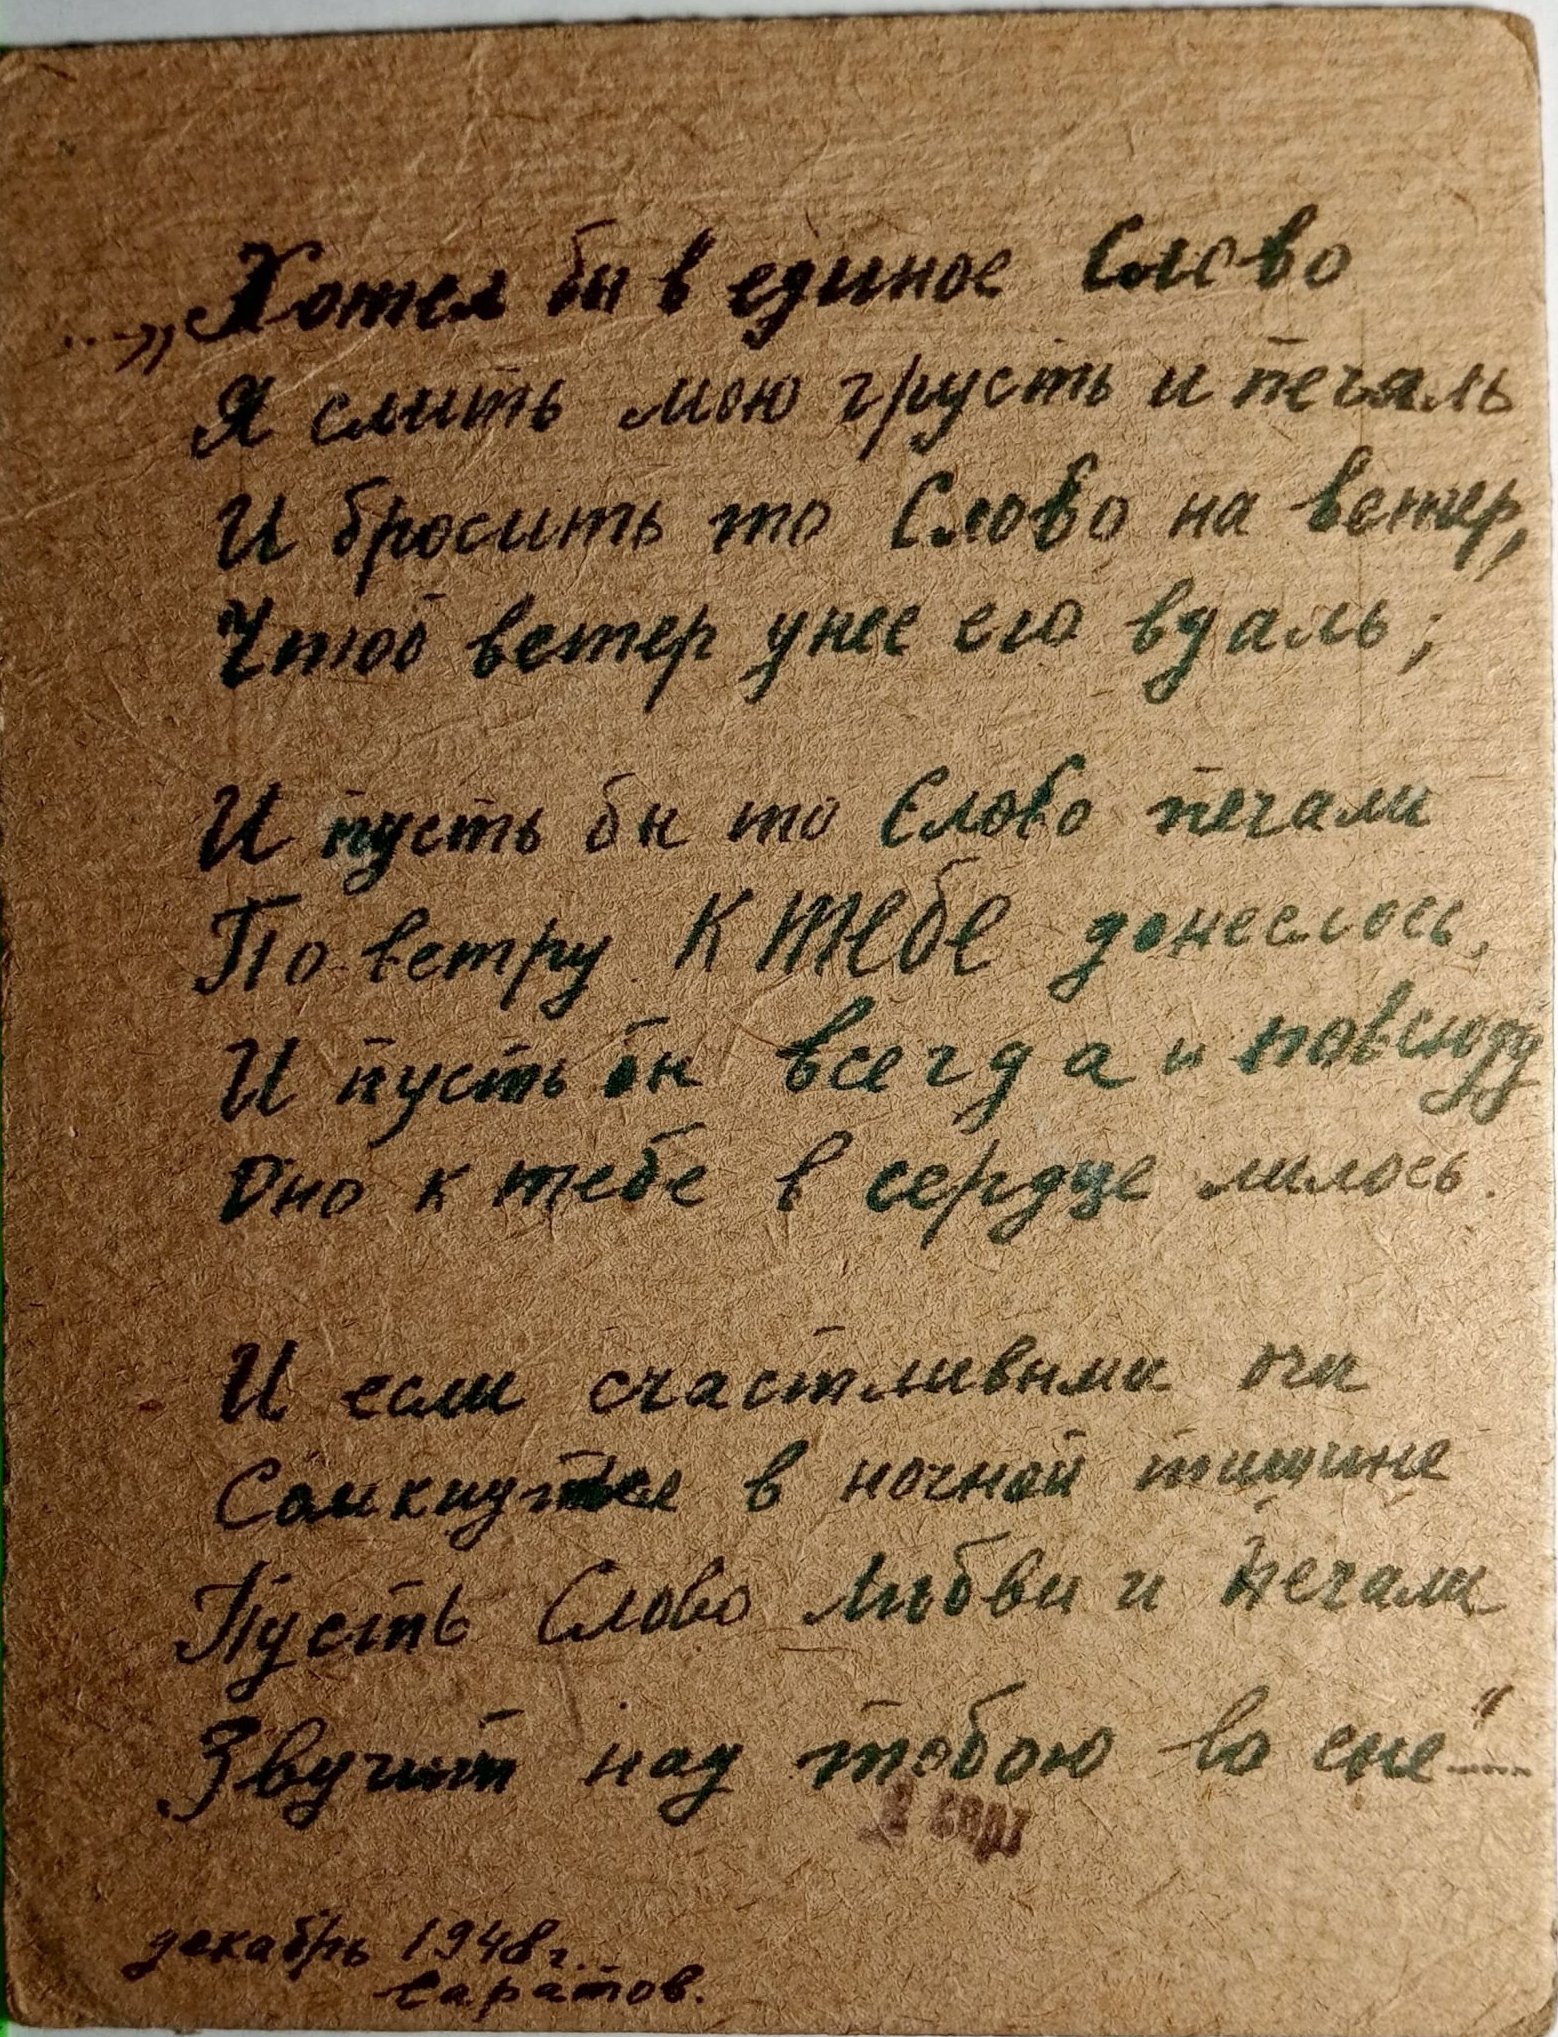 ..„Хотел бы в единое Слово
Я слить мою грусть и печаль
И бросить то Слово на ветер,
Чтоб ветер унес его вдаль;
И пусть бы то Слово печали
По ветру к тебе донеслось,
И пусть бы всегда и повсюду
Оно к тебе в сердце лилось.
И если счастливыми очи
Сомкнутся в ночной тишине
Пусть Слово Любви и печали
Звучит над тобою во сне“....
2 сорт
декабрь 1948г.
Саратов.